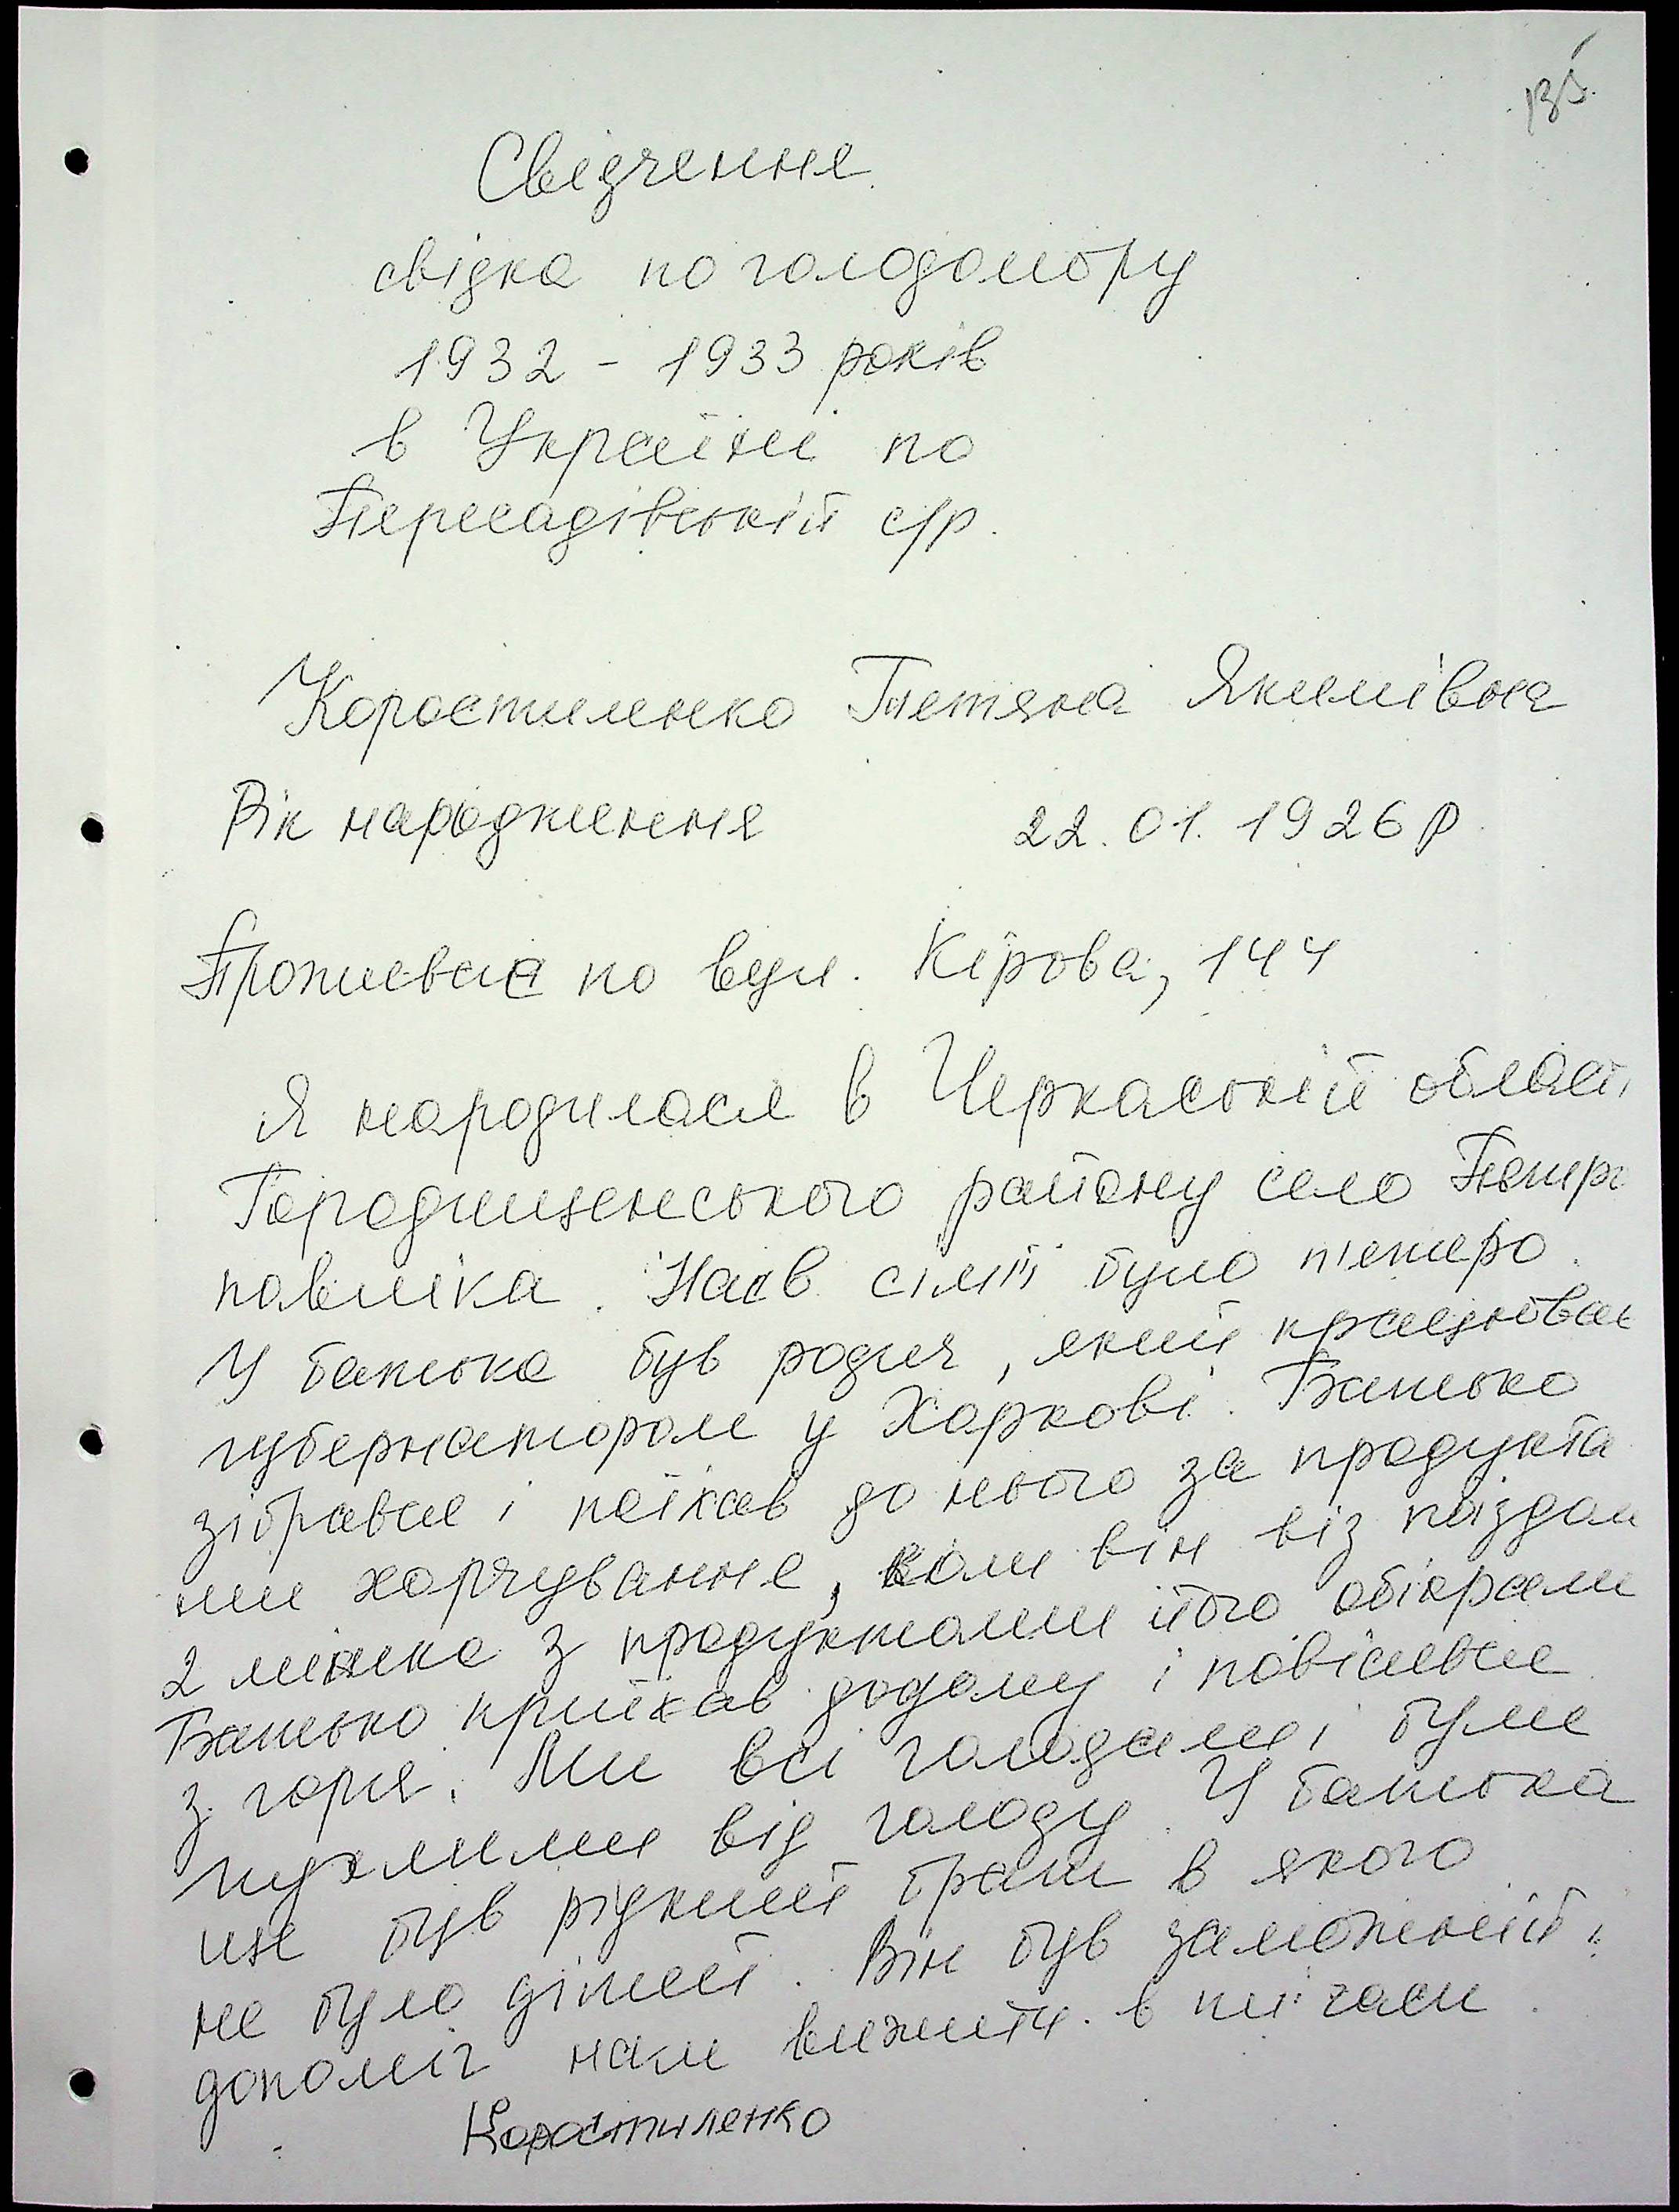 Свідчення
свідка по голодомору
1932 - 1933 років
в Україні по
Пересадівській с/р.
Коростиленко Тетяна Якимівна
Рік народження 22.01.1926 р
Проживає по вул. Кірова, 144
Я народилася в Черкаській област
Городищенського району село Петро
павлівка. Нас в сімії було пiятеро.
У батька був родич, який працював
губернатором у Харкові. Батько
зібрався і поїхав до нього за продукта
ми харчування, коли він віз поїздом
2 мішка з продуктами його обікрали
Батько приїхав додому і повісився
з горя. Ми всі голодали і були
пухлими від голоду. У батька
ще був рідний брат в якого
не було дітей. Він був заможній і
допоміг нам вижити в ті часи.
Коростиленко